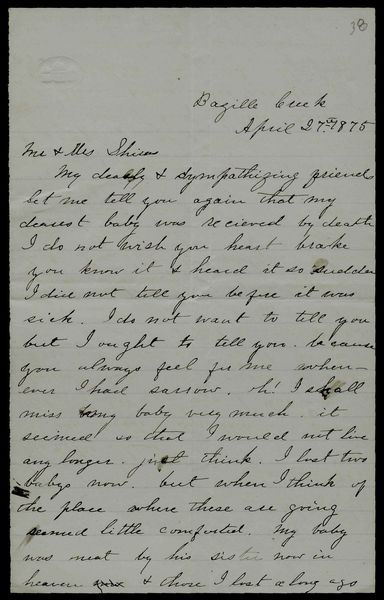 38
Bazille Creek
April 27th 1875
Mr & Mrs Shires
My dearly & sympathizing friends
let me tell you again that my
dearest baby was recieved by death
I do not wish you heart brake
you know it & heard it so sudden
I did not tell you before it was
sick. I do not want to tell you
but I ought to tell you. because
you always feel for me when-
ever I had sarrow. Oh! I shall
miss my baby very much. it
seimed so that I would not live
any longer. just think. I lost two
babys now. but when I think of
the place where these are going
seemed little comforted. My baby
was meat by his sister now in
heaven & those I lost along ago